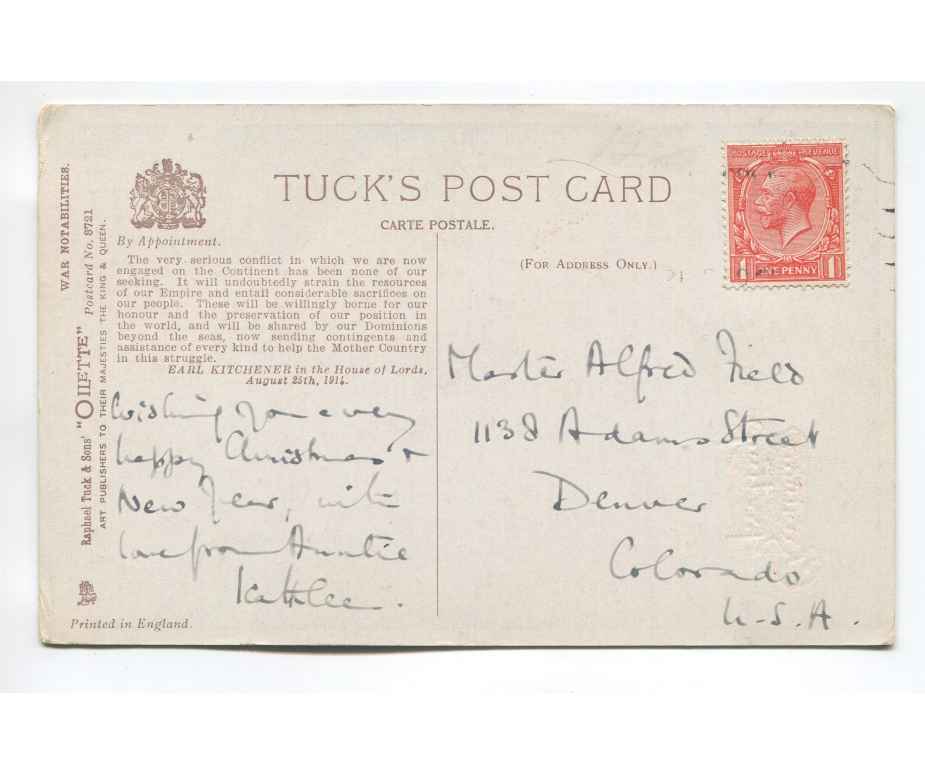 WAR NOTABILITIES.
Raphael Tuck & Sons' "OILETTE" Postcard No. 8721
ART PUBLISHERS TO THEIR MAJESTIES THE KING & QUEEN.
By Appointment.
TUCK'S POST CARD
CARTE POSTALE.
The very serious conflict in which we are now
engaged on the Continent has been none of our
seeking. It will undoubtedly strain the resources
of our Empire and entail considerable sacrifices on
our people. These will be willingly borne for our
honour and the preservation of our position in
the world, and will be shared by our Dominions
beyond the seas, now sending contingents and
assistance of every kind to help the Mother Country
in this struggle.
EARL KITCHENER in the House of Lords,
August 25th, 1914.
Wishing you a very
happy Christmas +
New Year, with
love from Auntie
Printed in England.
(FOR ADDRESS ONLY.)
POSTAGE REVENUE
1 ONE PENNY 1
Master Alfred Field
1138 Adams Street
Denver
Colorado
U.S.A.